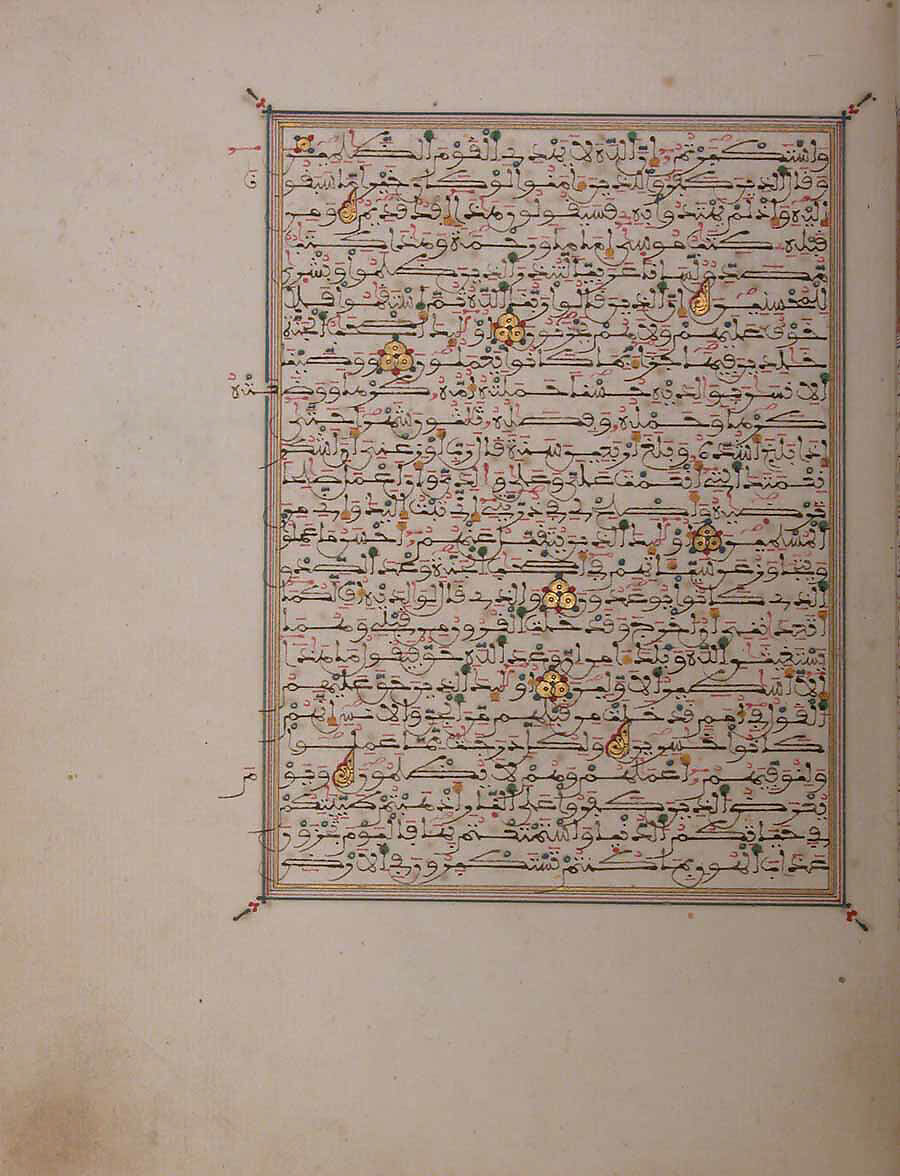 واستكبرتم إن الله لا يهدي القوم الظلمين
وقال الذين كفروا للذين ءامنوا لو كان خيرا ما سبقونا
إليه وإذ لم يهتدوا به فسيقولون هذا إفك قديم ومن
قبله كتب موسى إماما ورحمة وهذا كتب
مصدق لسانا عربيا لتنذر الذين ظلموا وبشرى
للمحسنين إن الذين قالوا ربنا الله ثم استقموا فلا
خوف عليهم ولا هم يحزنون أولئك أصحب الجنة
خلدين فيها جزاء بما كانوا يعملون ووصينا
الإنسن بولديه حسنا حملته أمه كرها ووضعته
كرها وحمله وفصله ثلثون شهرا حتى
إذا بلغ أشده وبلغ أربعين سنة قال رب أوزعني أن أشكر
نعمتك التي أنعمت علي وعلى ولدي وأن أعمل صلحا
ترضيه وأصلح لي في ذريتي إني تبت إليك وإني من
المسلمين أولئك الذين يتقبل عنهم أحسن ما عملوا
ويتجاوز عن سيئاتهم في أصحب الجنة وعد الصدق
الذي كانوا يوعدون والذي قال لولديه أف لكما
أتعدانني أن أخرج وقد خلت القرون من قبلي وهما
يستغيثن الله ويلك ءامن إن وعد الله حق فيقول ما هذا
إلا أسطير الأولين أولئك الذين حق عليهم
القول في أمم قد خلت من قبلهم من الجن والإنس إنهم
كانوا خسرين ولكل درجت مما عملوا
ولنوفيهم أعملهم وهم لا يظلمون ويوم
يعرض الذين كفروا على النار أذهبتم طيبتكم
في حياتكم الدنيا واستمتعتم بها فاليوم تجزون
عذاب الهون بما كنتم تستكبرون في الأرض